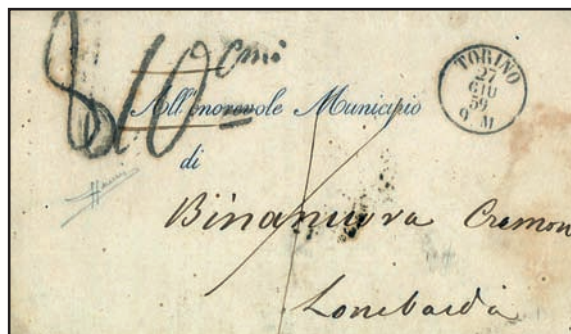 8 10 cmi
TORINO
27
GIU
59
9 M
All'onorevole Municipio
di
Binanuova Cremon
Lombardia